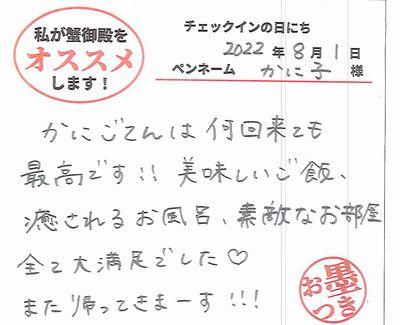 私が蟹御殿を
オススメ
します!
チェックインの日にち
2022 年 8 月 1 日
ペンネーム かに子 様
かにごてんは何回来ても
最高です!! 美味しいご飯、
癒されるお風呂、素敵なお部屋
全て大満足でした♡
また帰ってきまーす!!!
お墨つき